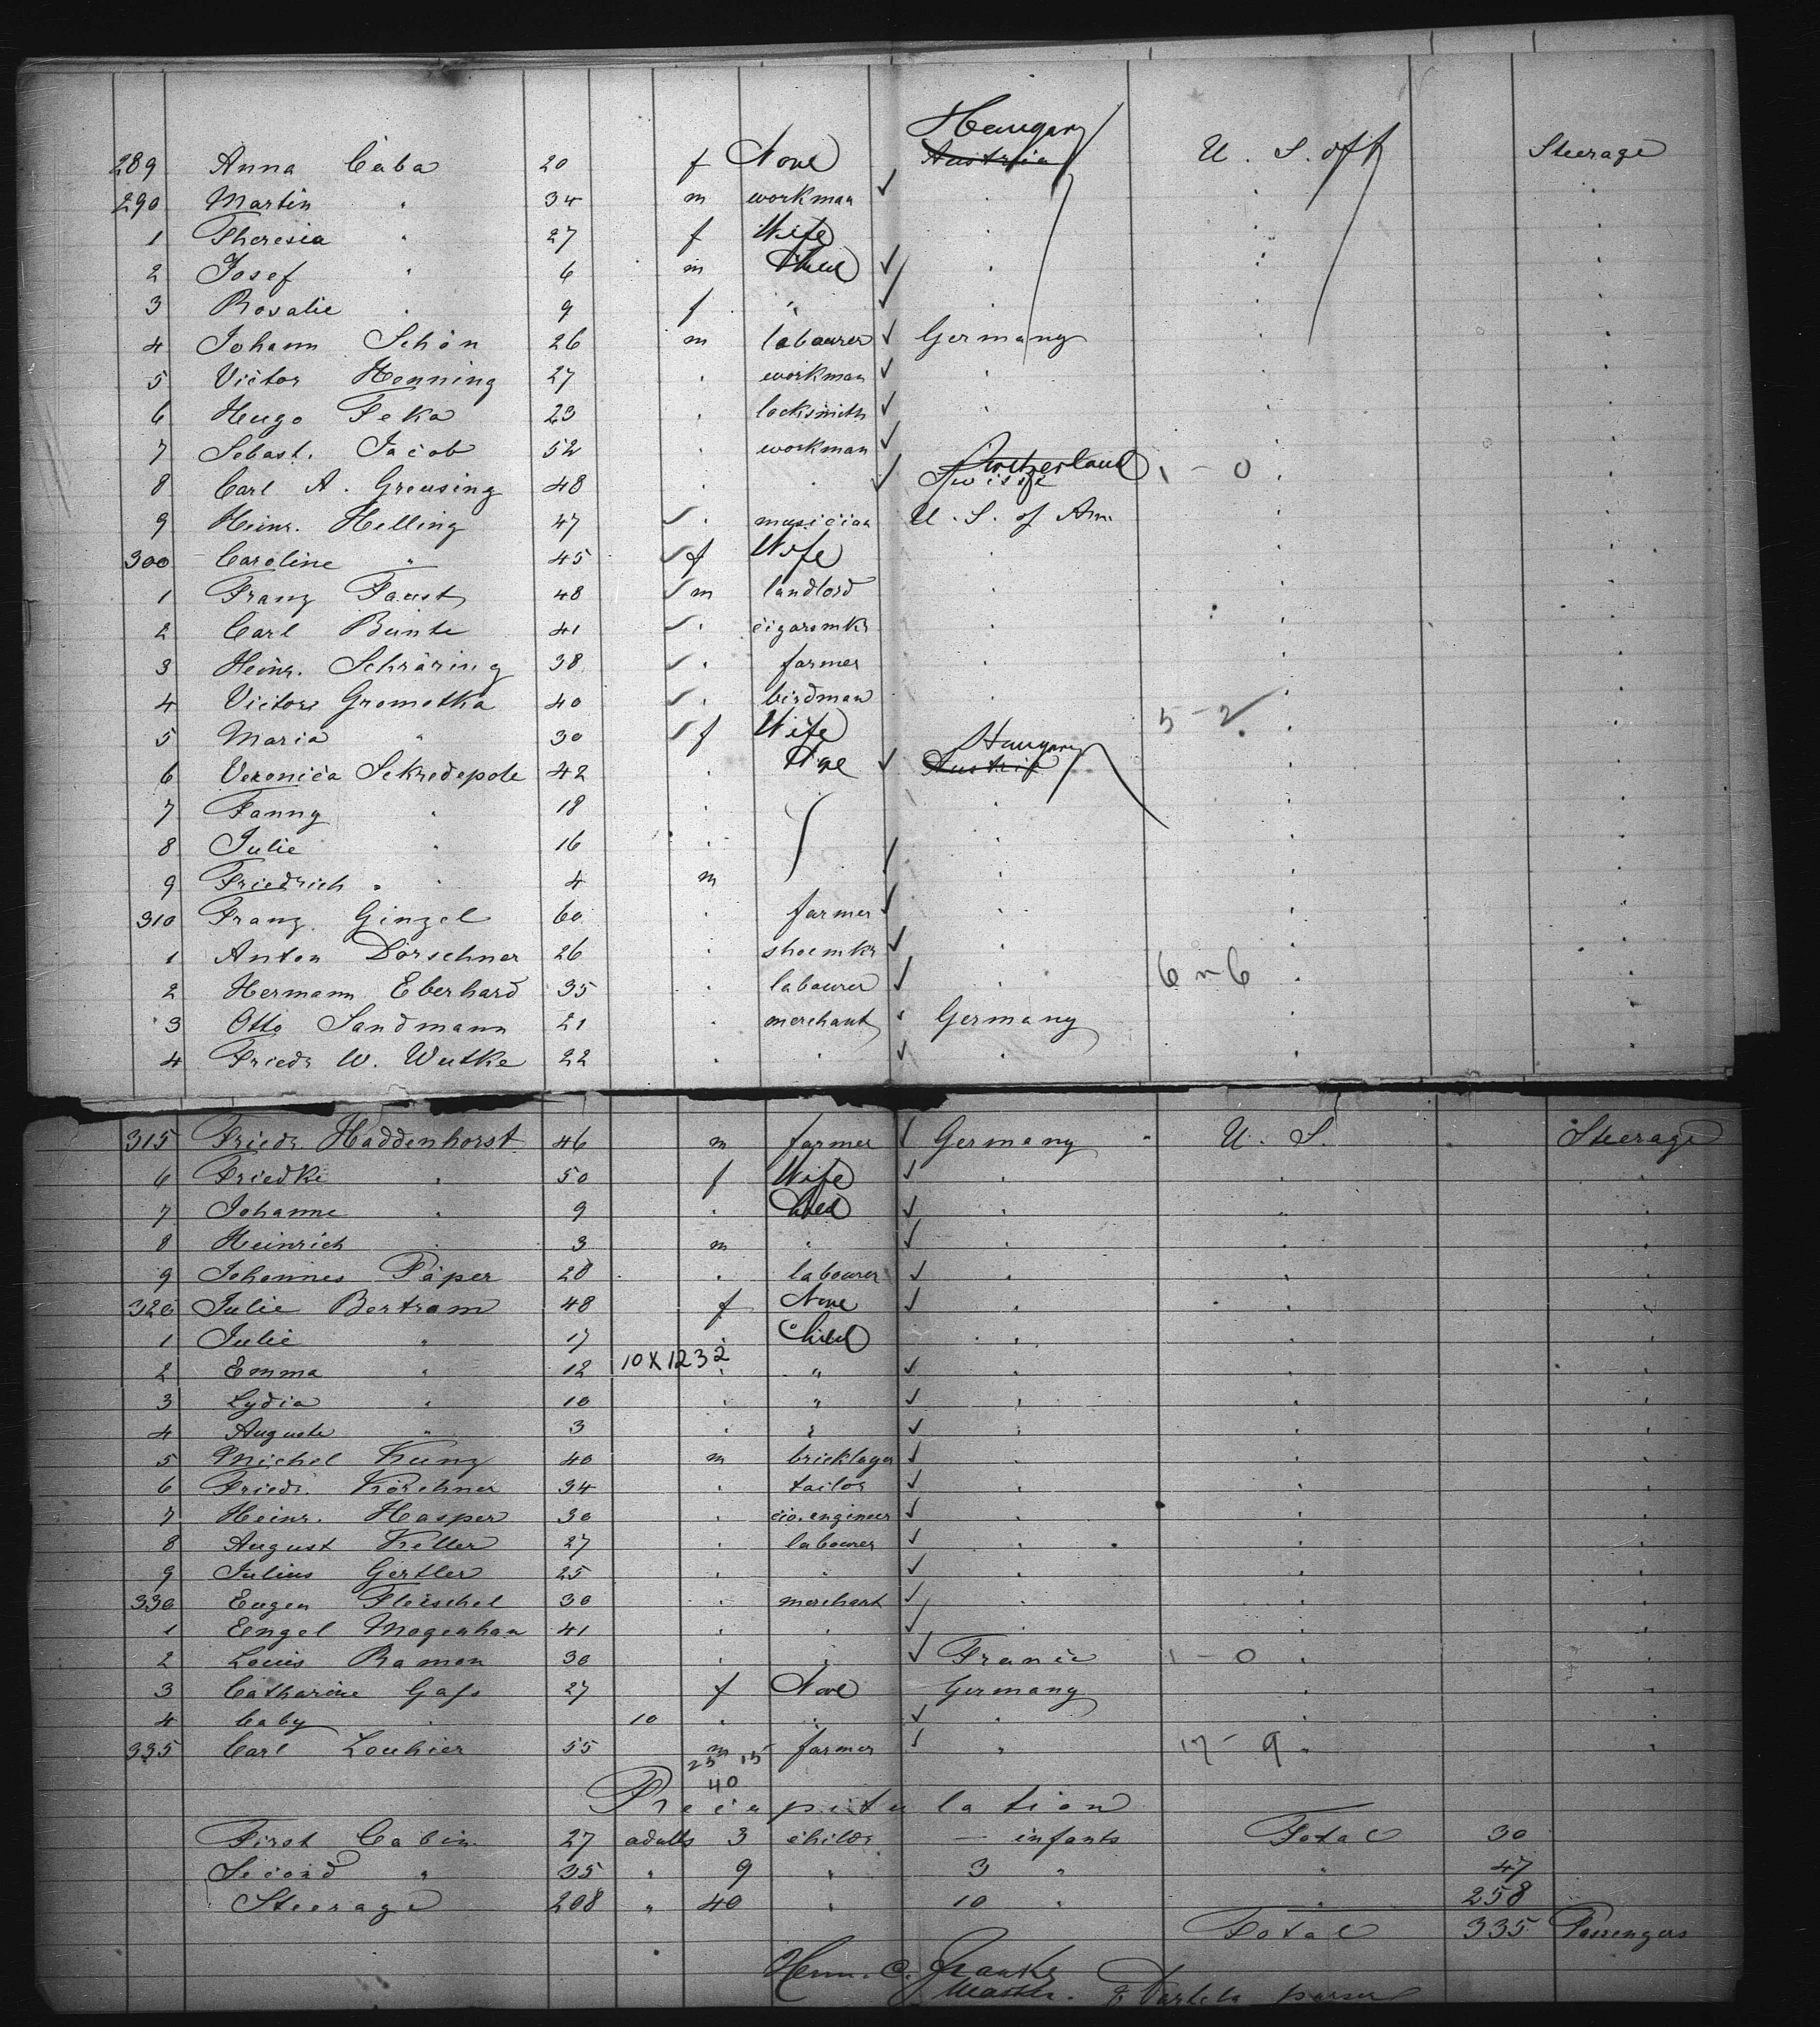 289 Anna Caba 20 f None Hungary Austria U. S. of A Steerage
290 Martin " 34 m workman "
1 Theresia " 27 f Wife "
2 Josef " 6 m Child "
3 Rosalie " 9 f " "
4 Johann Schön 26 m labourer Germany
5 Victor Henning 27 " workman "
6 Hugo Feka 23 " locksmith "
7 Sebast. Jacob 52 " workman
8 Carl A. Greusing 48 " " Switzerland 1 - 0
9 Heinr. Helling 47 " musician U. S. of Am.
300 Caroline " 45 f Wife "
1 Franz Faust 48 m landlord "
2 Carl Bunte 41 " cigarmkr "
3 Heinr. Schräring 38 " farmer "
4 Victor Gromotka 40 " birdman "
5 Maria " 30 f Wife 5 - 2
6 Veronica Sekredepole 42 " None Hungary Austria
7 Fanny " 18 " "
8 Julie " 16 " "
9 Friedrich " 4 m "
310 Franz Ginzel 60 " farmer "
1 Anton Dörschner 26 " shoemkr "
2 Hermann Eberhard 35 " labourer " 6 - 6
3 Otto Sandmann 21 " merchant Germany
4 Friedr W. Wutke 22 " " "
315 Friedr. Haddenhorst 46 m farmer Germany U. S. Steerage
6 Friedke " 50 f Wife "
7 Johanne " 9 " Child "
8 Heinrich " 3 m " "
9 Johannes Päper 28 " labourer "
320 Julie Bertram 48 f None "
1 Julie " 17 " Child "
2 Emma " 12 10X1232 " " "
3 Lydia " 10 " " "
4 Auguste " 3 " " "
5 Michel Kunz 40 m bricklayer "
6 Friedr. Körchner 34 " tailor "
7 Heinr. Hasper 30 " civ. engineer "
8 August Keller 27 " labourer "
9 Julius Gertler 25 " " "
330 Eugen Fleischel 30 " merchant "
1 Engel Mogenhan 41 " " "
2 Louis Ramon 30 " " France 1 - 0
3 Catharine Gass 27 f None Germany
4 baby " 10 " " "
335 Carl Louhier 55 m farmer " 17 - 9
25 15
40
Recapitulation
First Cabin 27 adults 3 childr — infants Total 30
Second " 35 " 9 " 3 " " 47
Steerage 208 " 40 " 10 " " 258
Total 335 Passengers
Herm. C. Franke
Master. purser